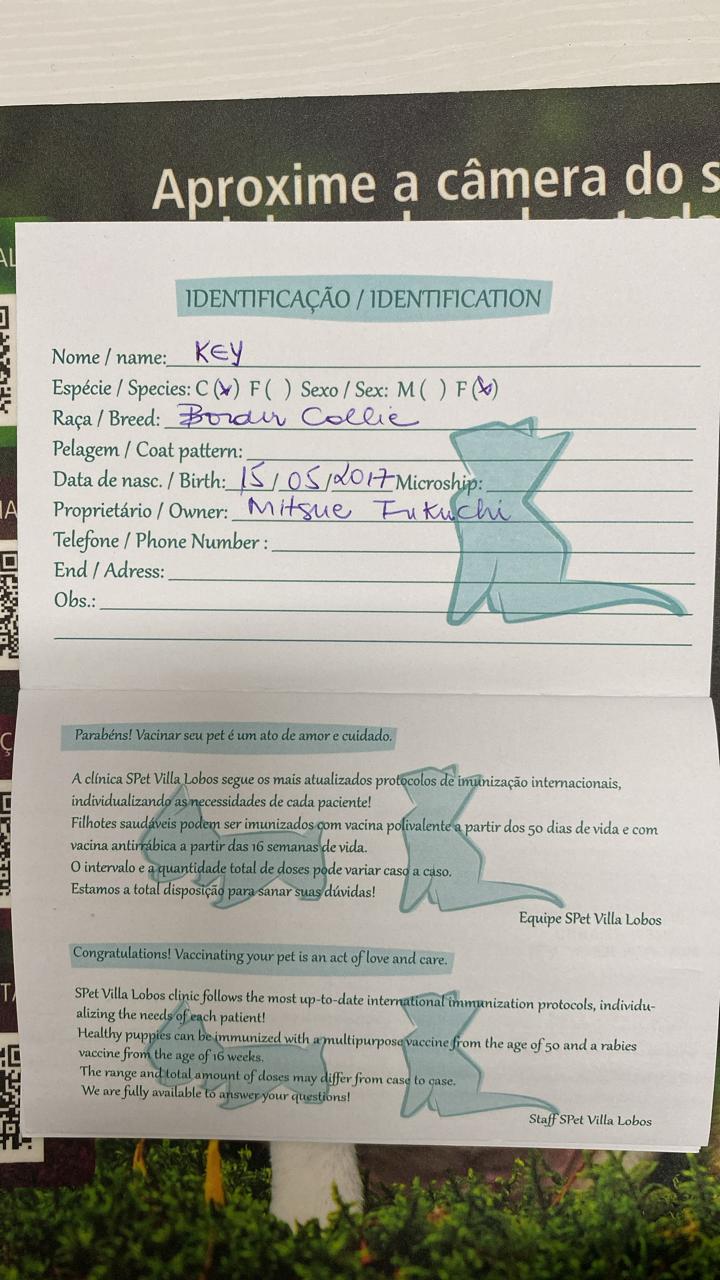 Aproxime a câmera do s
IDENTIFICAÇÃO / IDENTIFICATION
Nome / name: KEY
Espécie / Species: C (x) F ( ) Sexo / Sex: M ( ) F (x)
Raça / Breed: Border Collie
Pelagem / Coat pattern:
Data de nasc. / Birth: 15/05/2017 Microship:
Proprietário / Owner: Mitsue Fukuchi
Telefone / Phone Number :
End / Adress:
Obs.:
Parabéns! Vacinar seu pet é um ato de amor e cuidado.
A clínica SPet Villa Lobos segue os mais atualizados protocolos de imunização internacionais,
individualizando as necessidades de cada paciente!
Filhotes saudáveis podem ser imunizados com vacina polivalente a partir dos 50 dias de vida e com
vacina antirrábica a partir das 16 semanas de vida.
O intervalo e a quantidade total de doses pode variar caso a caso.
Estamos a total disposição para sanar suas dúvidas!
Equipe SPet Villa Lobos
Congratulations! Vaccinating your pet is an act of love and care.
SPet Villa Lobos clinic follows the most up-to-date international immunization protocols, individu-
alizing the needs of each patient!
Healthy puppies can be immunized with a multipurpose vaccine from the age of 50 and a rabies
vaccine from the age of 16 weeks.
The range and total amount of doses may differ from case to case.
We are fully available to answer your questions!
Staff SPet Villa Lobos